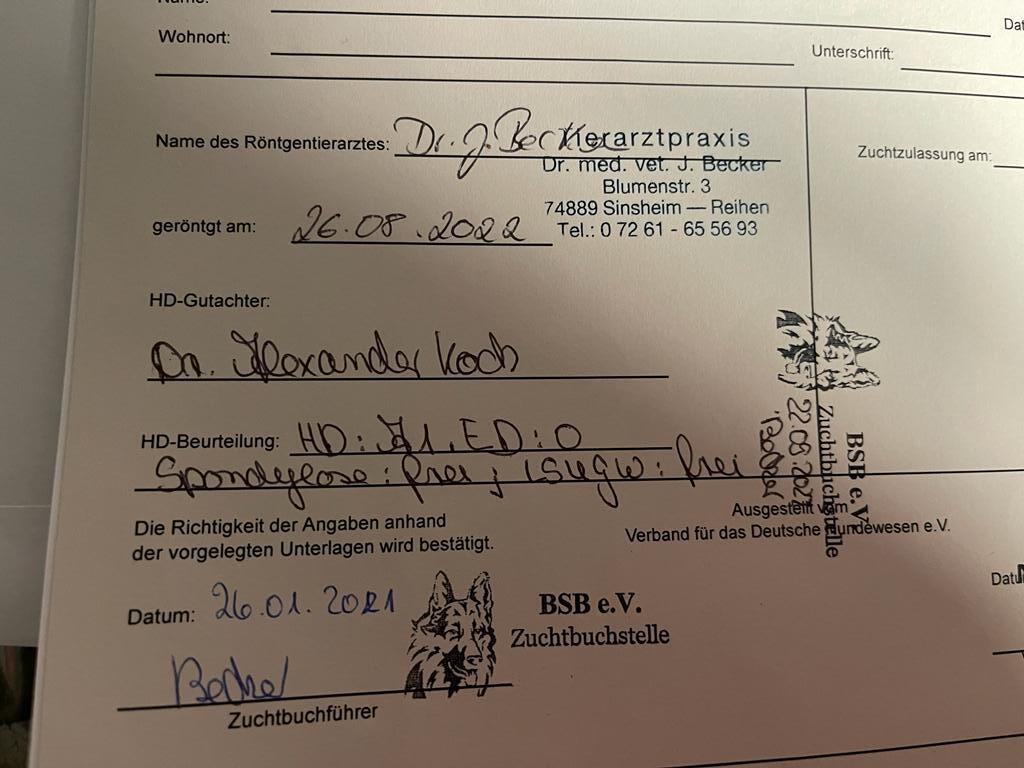 Name:
Dat
Wohnort:
Unterschrift:
Name des Röntgentierarztes: Dr. J. Becker
Tierarztpraxis
Dr. med. vet. J. Becker
Blumenstr. 3
74889 Sinsheim — Reihen
Tel.: 0 72 61 - 65 56 93
Zuchtzulassung am:
geröntgt am: 26.08.2022
HD-Gutachter:
Dr. Alexander Koch
HD-Beurteilung: HD: A1, ED: 0
Spondylose: frei; LSÜGW: frei
BSB e.V.
Zuchtbuchstelle
Ausgestellt vom
Verband für das Deutsche Hundewesen e.V.
Die Richtigkeit der Angaben anhand
der vorgelegten Unterlagen wird bestätigt.
Datum: 26.01.2021
BSB e.V.
Zuchtbuchstelle
Zuchtbuchführer